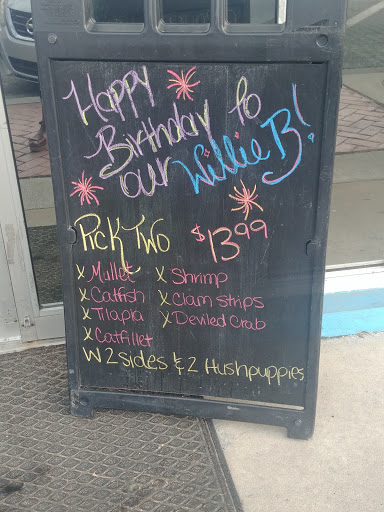 Happy
Birthday to
our Willie B!
Pick Two $13.99
x Mullet x Shrimp
x Catfish x Clam strips
x Tilapia x Deviled Crab
x Catfillet
W 2 sides & 2 Hushpuppies